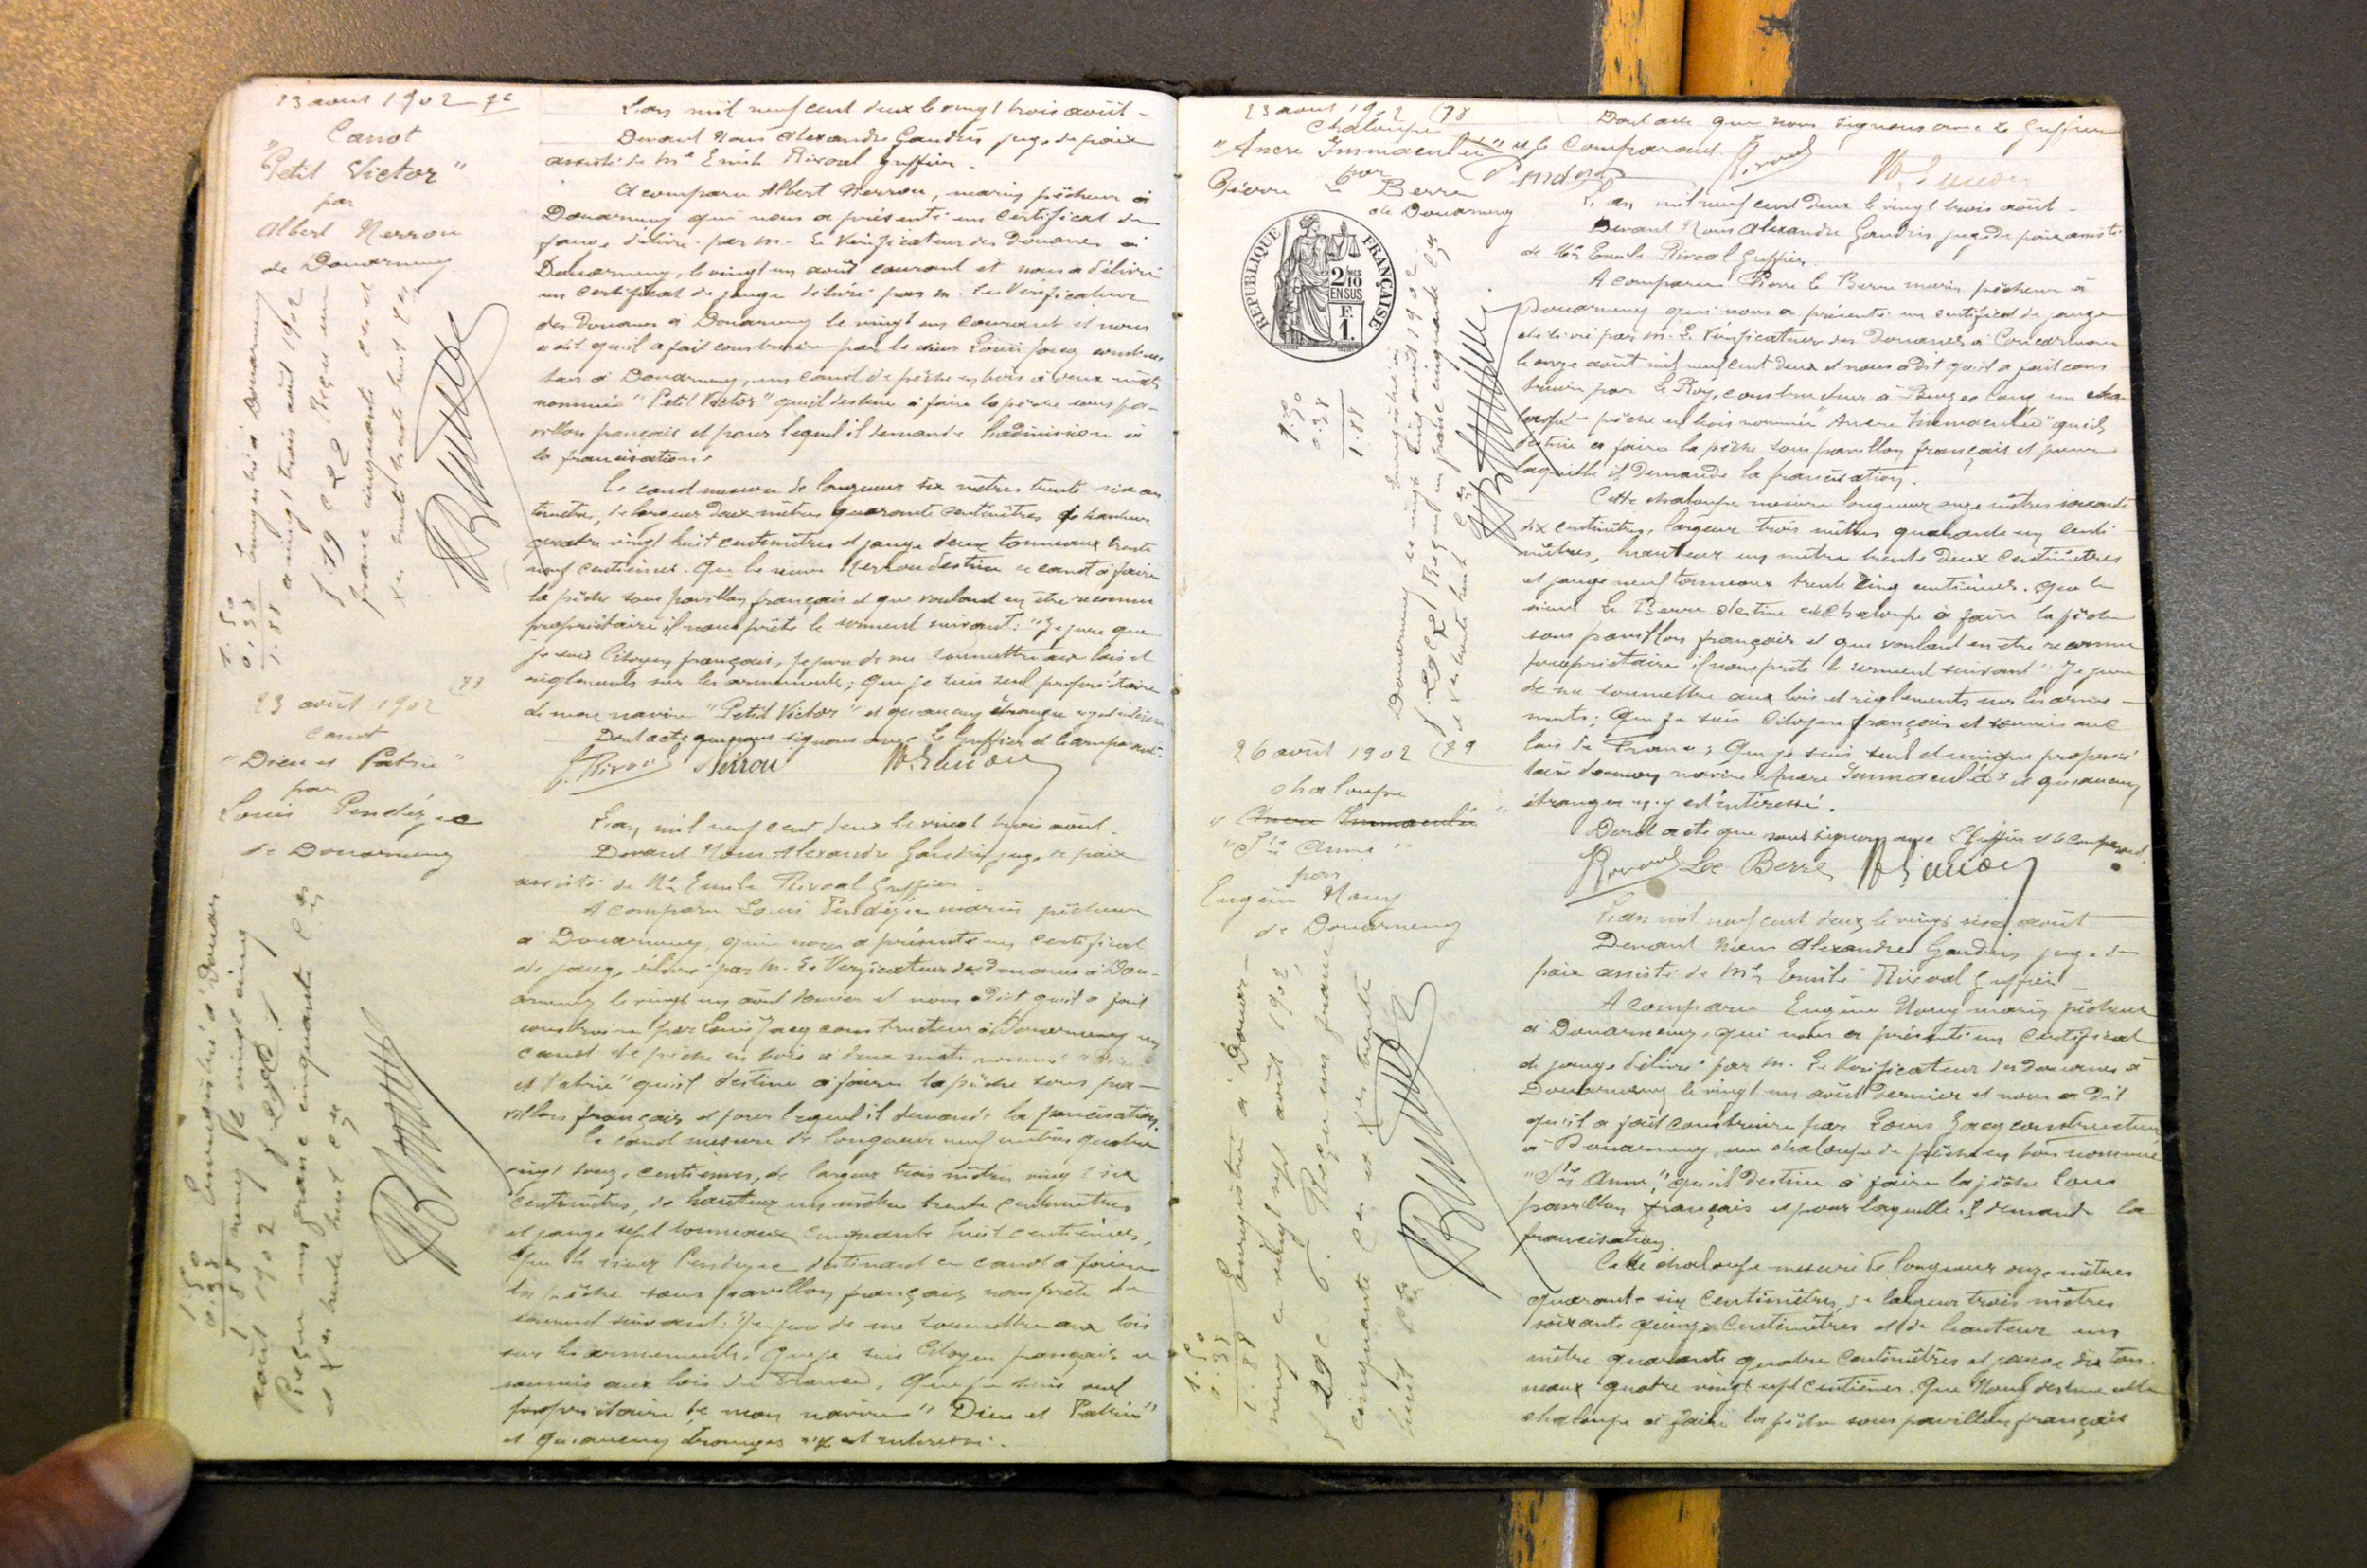 23 août 1902 76
Canot
"Petit Victor"
par
Albert Nerrou
de Douarnenez
Enregistré à Douarnenez
a vingt trois août 1902
f. 19 C 22 Reçu un
franc cinquante ces et
Xes trente huit Ces
1.50
0,38
1.88
L'an mil neuf cent deux le vingt trois août -
Devant Nous Alexandre Gaudin juge de paix
assisté de Me Emile Rivoal Greffier.
A comparu Albert Nerrou, marin pêcheur à
Douarnenez qui nous a présenté un certificat de
jauge délivré par M. Le Vérificateur des Douanes à
Douarnenez, le vingt un août courant et nous a délivré
un certificat de jauge délivré par M. Le Vérificateur
des Douanes à Douarnenez le vingt un courant et nous
a dit qu'il a fait construire par le sieur Louis Jacq construc
teur à Douarnenez, un canot de pêche en bois à deux mâts
nommé "Petit Victor" qu'il destine à faire la pêche sous pa-
villon français et pour lequel il demande l'admission à
la francisation.
Ce canot mesure de longueur six mètres trente six cen
timètres, de largeur deux mètres quarante centimètres de hauteur
quatre vingt huit centimètres et jauge deux tonneaux trente
neuf centièmes. Que le sieur Nerrou destine ce canot à faire
la pêche sous pavillon français et que voulant en être reconnu
propriétaire il nous prête le serment suivant: "Je jure que
je suis Citoyen français, je jure de me soumettre aux lois et
règlements sur les armements; que je suis seul propriétaire
de mon navire "Petit Victor" et qu'aucun étranger n'y est intéressé
Dont acte que nous signons avec le Greffier et le comparant.
Rivoal Nerrou
23 août 1902 77
Canot
"Dieu et Patrie"
par
Louis Pendézec
de Douarnenez
Enregistré à Douar-
nenez le vingt cinq
août 1902 f
Reçu un franc cinquante Ces
et Xes trente huit Ces
1.50
0.38
1.88
L'an mil neuf cent deux le vingt trois août.
Devant Nous Alexandre Gaudin juge de paix
assisté de Me Emile Rivoal Greffier.
A comparu Louis Pendézec marin pêcheur
à Douarnenez, qui nous a présenté un certificat
de jauge, délivré par M. Le Vérificateur des Douanes à Dou-
arnenez le vingt un août dernier et nous a dit qu'il a fait
construire par Louis Jacq constructeur à Douarnenez un
canot de pêche en bois à deux mâts nommé "Dieu
et Patrie" qu'il destine à faire la pêche sous pa-
villon français et pour lequel il demande la francisation.
Ce canot mesure de longueur neuf mètres quatre
vingt centièmes, de largeur trois mètres vingt six
centimètres, de hauteur un mètre trente centimètres
et jauge sept tonneaux cinquante huit centièmes,
Que le sieur Pendézec destinant ce canot à faire
la pêche sous pavillon français nous prête le
serment suivant: "Je jure de me soumettre aux lois
sur les armements; Que je suis Citoyen français et
soumis aux lois de France; Que je suis seul
propriétaire de mon navire "Dieu et Patrie"
et qu'aucun étranger n'y est intéressé.
23 août 1902 (78
Chaloupe
"Ancre Immaculée"
par
Pierre Le Berre
de Douarnenez
RÉPUBLIQUE FRANÇAISE
2/10 MES
EN SUS
F.
1.
Enregistré à
Douarnenez le vingt cinq août 1902
Reçu un franc cinquante Ces
et Xes trente huit Ces
1.50
0.38
1.88
Dont acte que nous signons avec le Greffier
et le Comparant.
Rivoal
L'an mil neuf cent deux le vingt trois août -
Devant Nous Alexandre Gaudin juge de paix assisté
de Me Emile Rivoal Greffier.
A comparu Pierre Le Berre marin pêcheur à
Douarnenez qui nous a présenté un certificat de jauge
délivré par M. Le Vérificateur des Douanes à Concarneau
le onze août mil neuf cent deux et nous a dit qu'il a fait cons
truire par Le Roy, constructeur à un cha
loupe pêche en bois nommée "Ancre Immaculée" qu'il
destine à faire la pêche sous pavillon français et pour
laquelle il demande la francisation.
Cette chaloupe mesure longueur onze mètres soixante
dix centimètres, largeur trois mètres quarante un centi
mètres, hauteur un mètre trente deux centimètres
et jauge neuf tonneaux trente cinq centièmes. Que le
sieur Le Berre destine cette chaloupe à faire la pêche
sous pavillon français et que voulant en être reconnu
propriétaire il nous prête le serment suivant "Je jure
de me soumettre aux lois et règlements sur les arme -
ments; Que je suis Citoyen français et soumis aux
lois de France; Que je suis seul et unique proprié
taire de mon navire "Ancre Immaculée" et qu'aucun
étranger n'y est intéressé.
Dont acte que nous signons avec le Greffier et le Comparant.
Rivoal Le Berre
26 août 1902 (79
chaloupe
"Ancre Immaculée"
"Ste Anne"
par
Eugène Nouy
de Douarnenez
Enregistré à Douar-
nenez le vingt sept août 1902
f 20 C 6. Reçu un franc
cinquante Ces et Xes trente
huit Ces
1.50
0.38
1.88
L'an mil neuf cent deux le vingt six août
Devant Nous Alexandre Gaudin juge de
paix assisté de Me Emile Rivoal Greffier
A comparu Eugène Nouy marin pêcheur
à Douarnenez, qui nous a présenté un certificat
de jauge délivré par M. Le Vérificateur des Douanes à
Douarnenez le vingt un août dernier et nous a dit
qu'il a fait construire par Louis Jacq constructeur
à Douarnenez, une chaloupe de pêche en bois nommée
"Ste Anne," qu'il destine à faire la pêche sous
pavillon français et pour laquelle il demande la
francisation
Cette chaloupe mesure de longueur onze mètres
quarante six centimètres, de largeur trois mètres
soixante quinze centimètres et de hauteur un
mètre quarante quatre centimètres et jauge dix ton-
neaux quatre vingt sept centièmes. Que Nouy destine cette
chaloupe à faire la pêche sous pavillon français